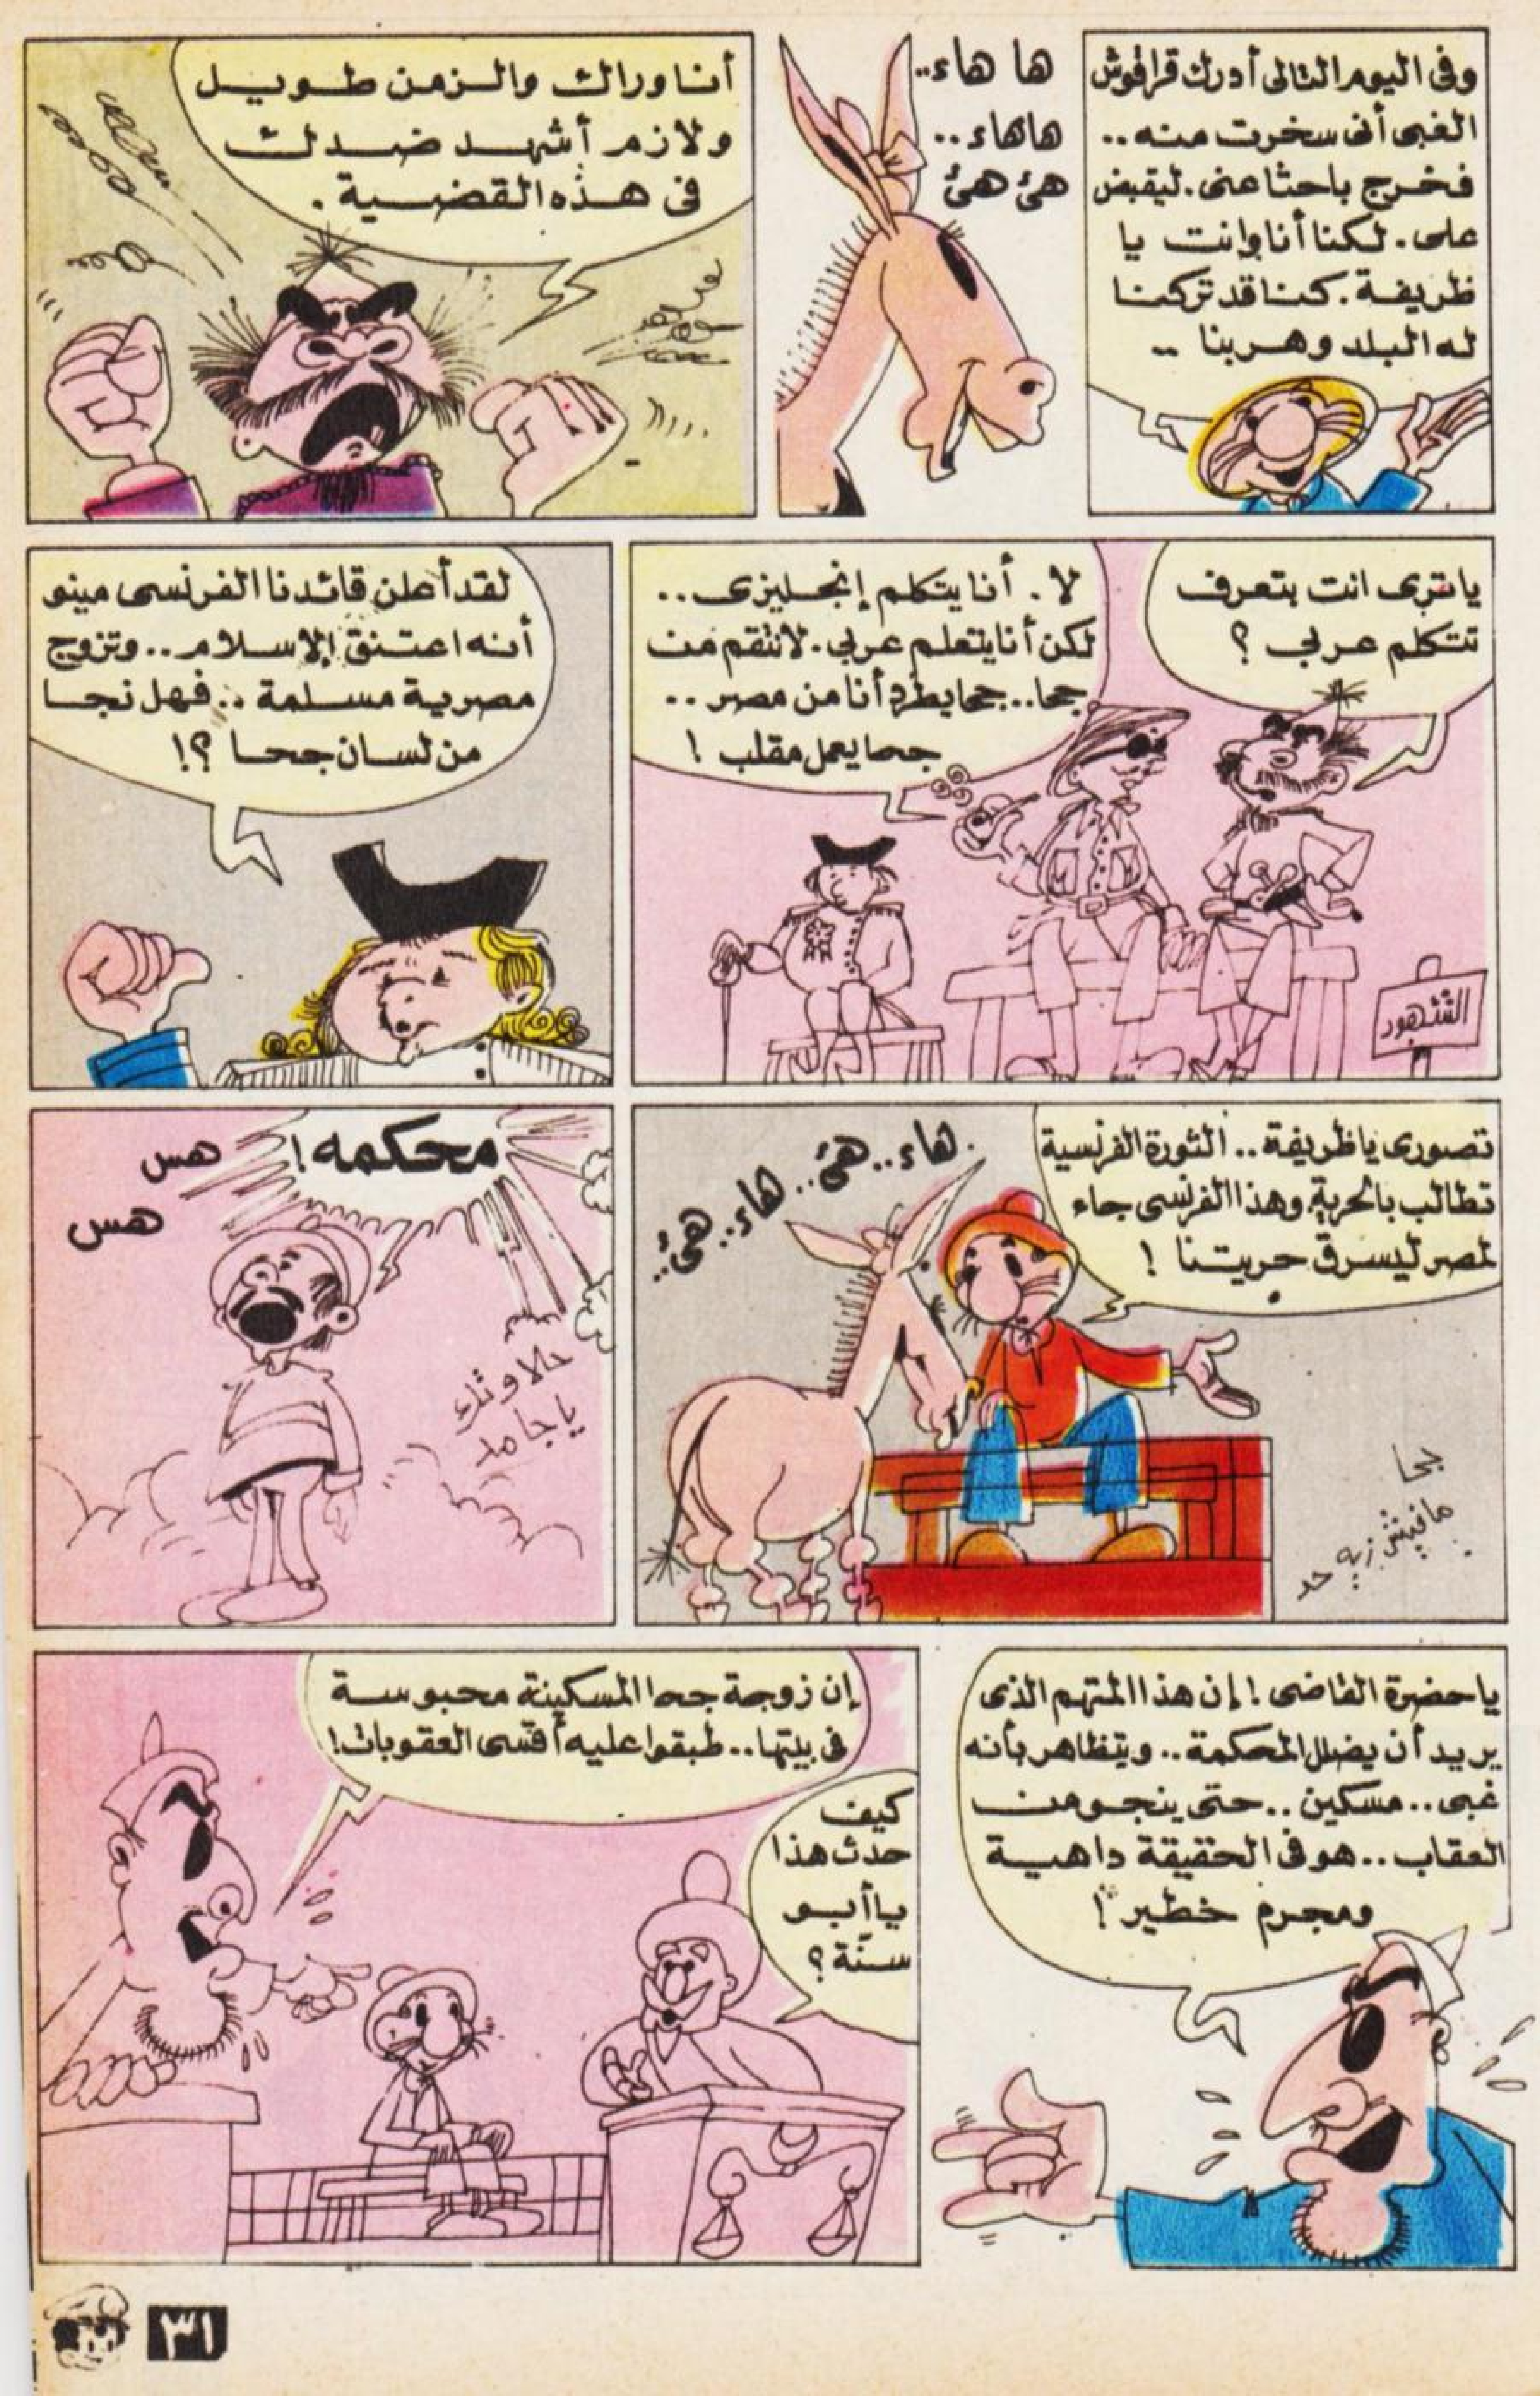 وفى اليوم التالى أدرك قراقوش
الغبى أنى سخرت منه..
فخرج باحثا عنى. ليقبض
على. لكنا أنا وانت يا
ظريفة. كنا قد تركنا
له البلد وهربنا ..
ها هاء..
هاهاء..
هئ هئ
أنا وراك والزمن طويل
ولازم أشهد ضدك
فى هذه القضية.
يا ترى انت بتعرف
تتكلم عربى ؟
لا. أنا يتكلم إنجليزى..
لكن أنا يتعلم عربى. لانتقم من
جحا.. جحا يطرد أنا من مصر ..
جحا يعمل مقلب !
الشهود
لقد أعلن قائدنا الفرنسى مينو
أنه اعتنق الإسلام.. وتزوج
مصرية مسلمة .. فهل نجا
من لسان جحا ؟!
تصورى يا ظريفة.. الثورة الفرنسية
تطالب بالحرية. وهذا الفرنسى جاء
لمصر ليسرق حريتنا !
هاء.. هئ.. هاء.. هئ..
جحا
مافيش زيه حد
محكمه !
هس
هس
حلاوتك
يا جامد
يا حضرة القاضى ! إن هذا المتهم الذى
يريد أن يضلل المحكمة.. ويتظاهر بأنه
غبى.. مسكين.. حتى ينجو من
العقاب.. هو فى الحقيقة داهية
ومجرم خطير !
إن زوجة جحا المسكينة محبوسة
فى بيتها.. طبقوا عليه أقسى العقوبات!
كيف
حدث هذا
يا أبو
سنّة ؟
٣١